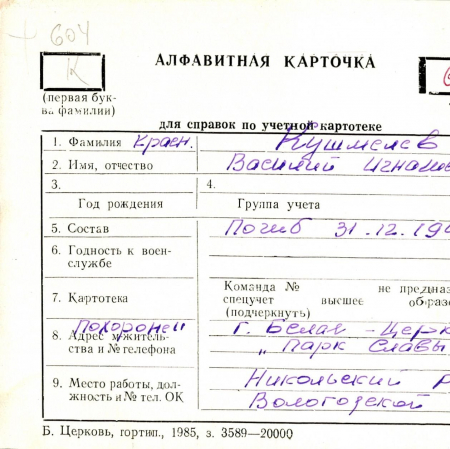 604
К
АЛФАВИТНАЯ КАРТОЧКА
(первая бук-
ва фамилии)
для справок по учетной картотеке
1. Фамилия красн. Кушмелев
2. Имя, отчество Василий Игнатов
3. 4.
Год рождения Группа учета
5. Состав Погиб 31.12.194
6. Годность к воен-
службе
Команда № не предназ
7. Картотека спецучет высшее образо
(подчеркнуть)
Похоронен г. Белая - Церк
8. Адрес м/житель-
ства и № телефона „ Парк Славы
9. Место работы, дол- Никольский р
жность и № тел. ОК Вологодской
Б. Церковь, гортип., 1985, з. 3589—20000